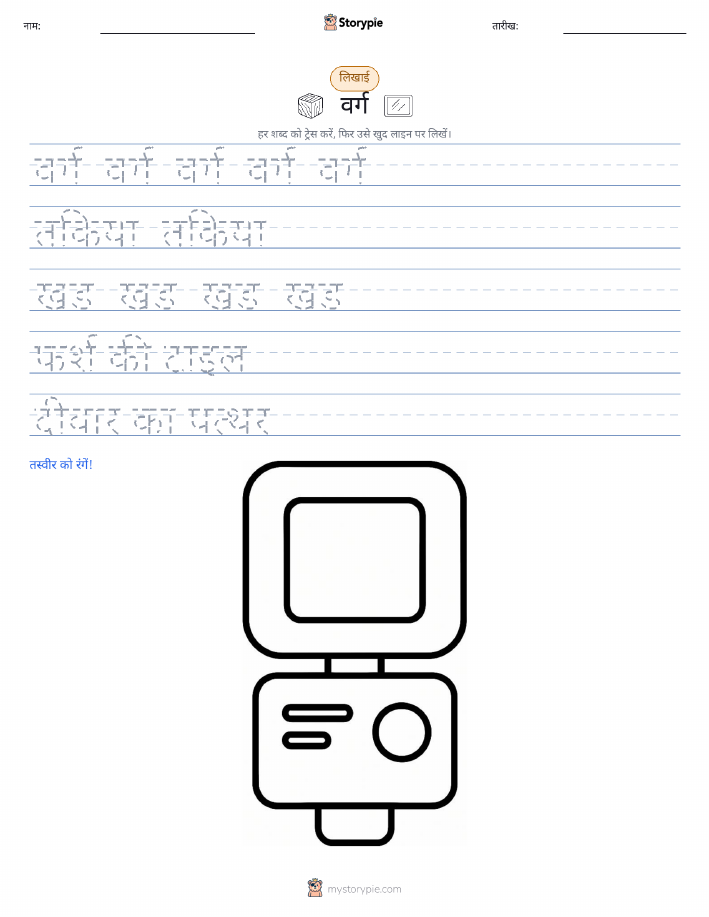 नाम:
Storypie
तारीख:
लिखाई
वर्ग
हर शब्द को ट्रेस करें, फिर उसे खुद लाइन पर लिखें।
वर्ग वर्ग वर्ग वर्ग वर्ग
तकिया तकिया
खंड खंड खंड खंड
फर्श की टाइल
दीवार का पत्थर
तस्वीर को रंगें!
mystorypie.com